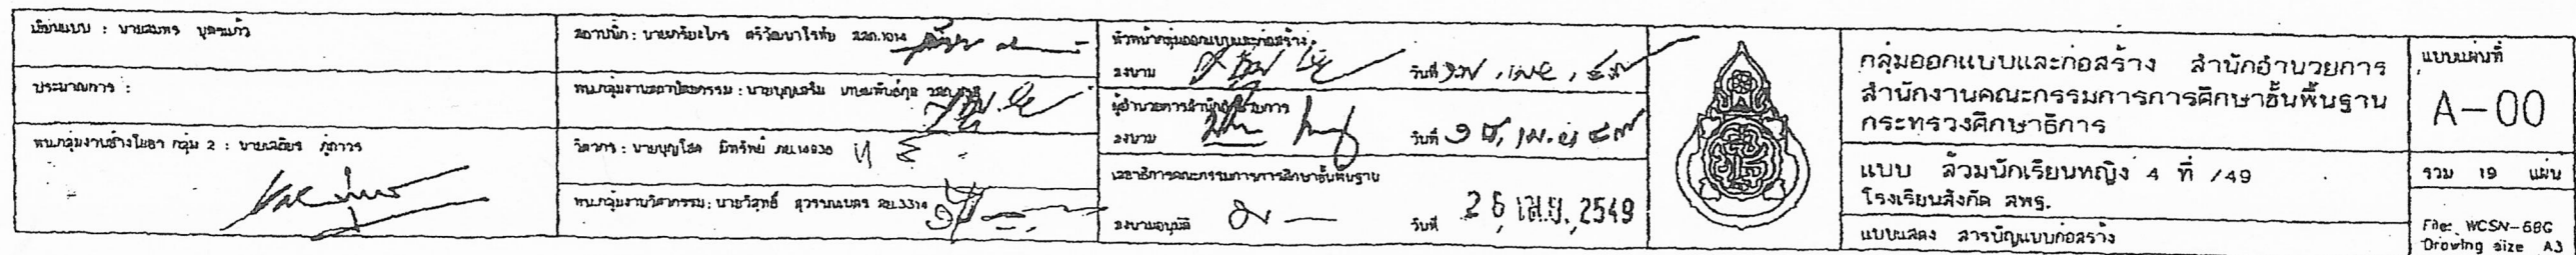 เขียนแบบ : นายสมทร บุตรแก้ว
ประมาณการ :
หน.กลุ่มงานช่างโยธา กลุ่ม 2 : นายเสถียร ภู่ถาวร
สถาปนิก : นายเกรียงไกร ศรีวัฒนาโรทัย สสถ.1014
หน.กลุ่มงานสถาปัตยกรรม : นายบุญเสริม
วิศวกร : นายบุญโสด มีทรัพย์ ภย.14930
หน.กลุ่มงานวิศวกรรม : นายวิสุทธิ์ สุวรรณเนตร สย.3314
หัวหน้ากลุ่มออกแบบและก่อสร้าง
ลงนาม วันที่
ผู้อำนวยการสำนักอำนวยการ
ลงนาม วันที่
เลขาธิการคณะกรรมการการศึกษาขั้นพื้นฐาน
ลงนามอนุมัติ วันที่ 26 เม.ย. 2549
กลุ่มออกแบบและก่อสร้าง สำนักอำนวยการ
สำนักงานคณะกรรมการการศึกษาขั้นพื้นฐาน
กระทรวงศึกษาธิการ
แบบ ส้วมนักเรียนหญิง 4 ที่ /49
โรงเรียนสังกัด สพฐ.
แบบแสดง สารบัญแบบก่อสร้าง
แบบแผ่นที่
A-00
รวม 19 แผ่น
File: WCSN-6BG
Drawing size A3